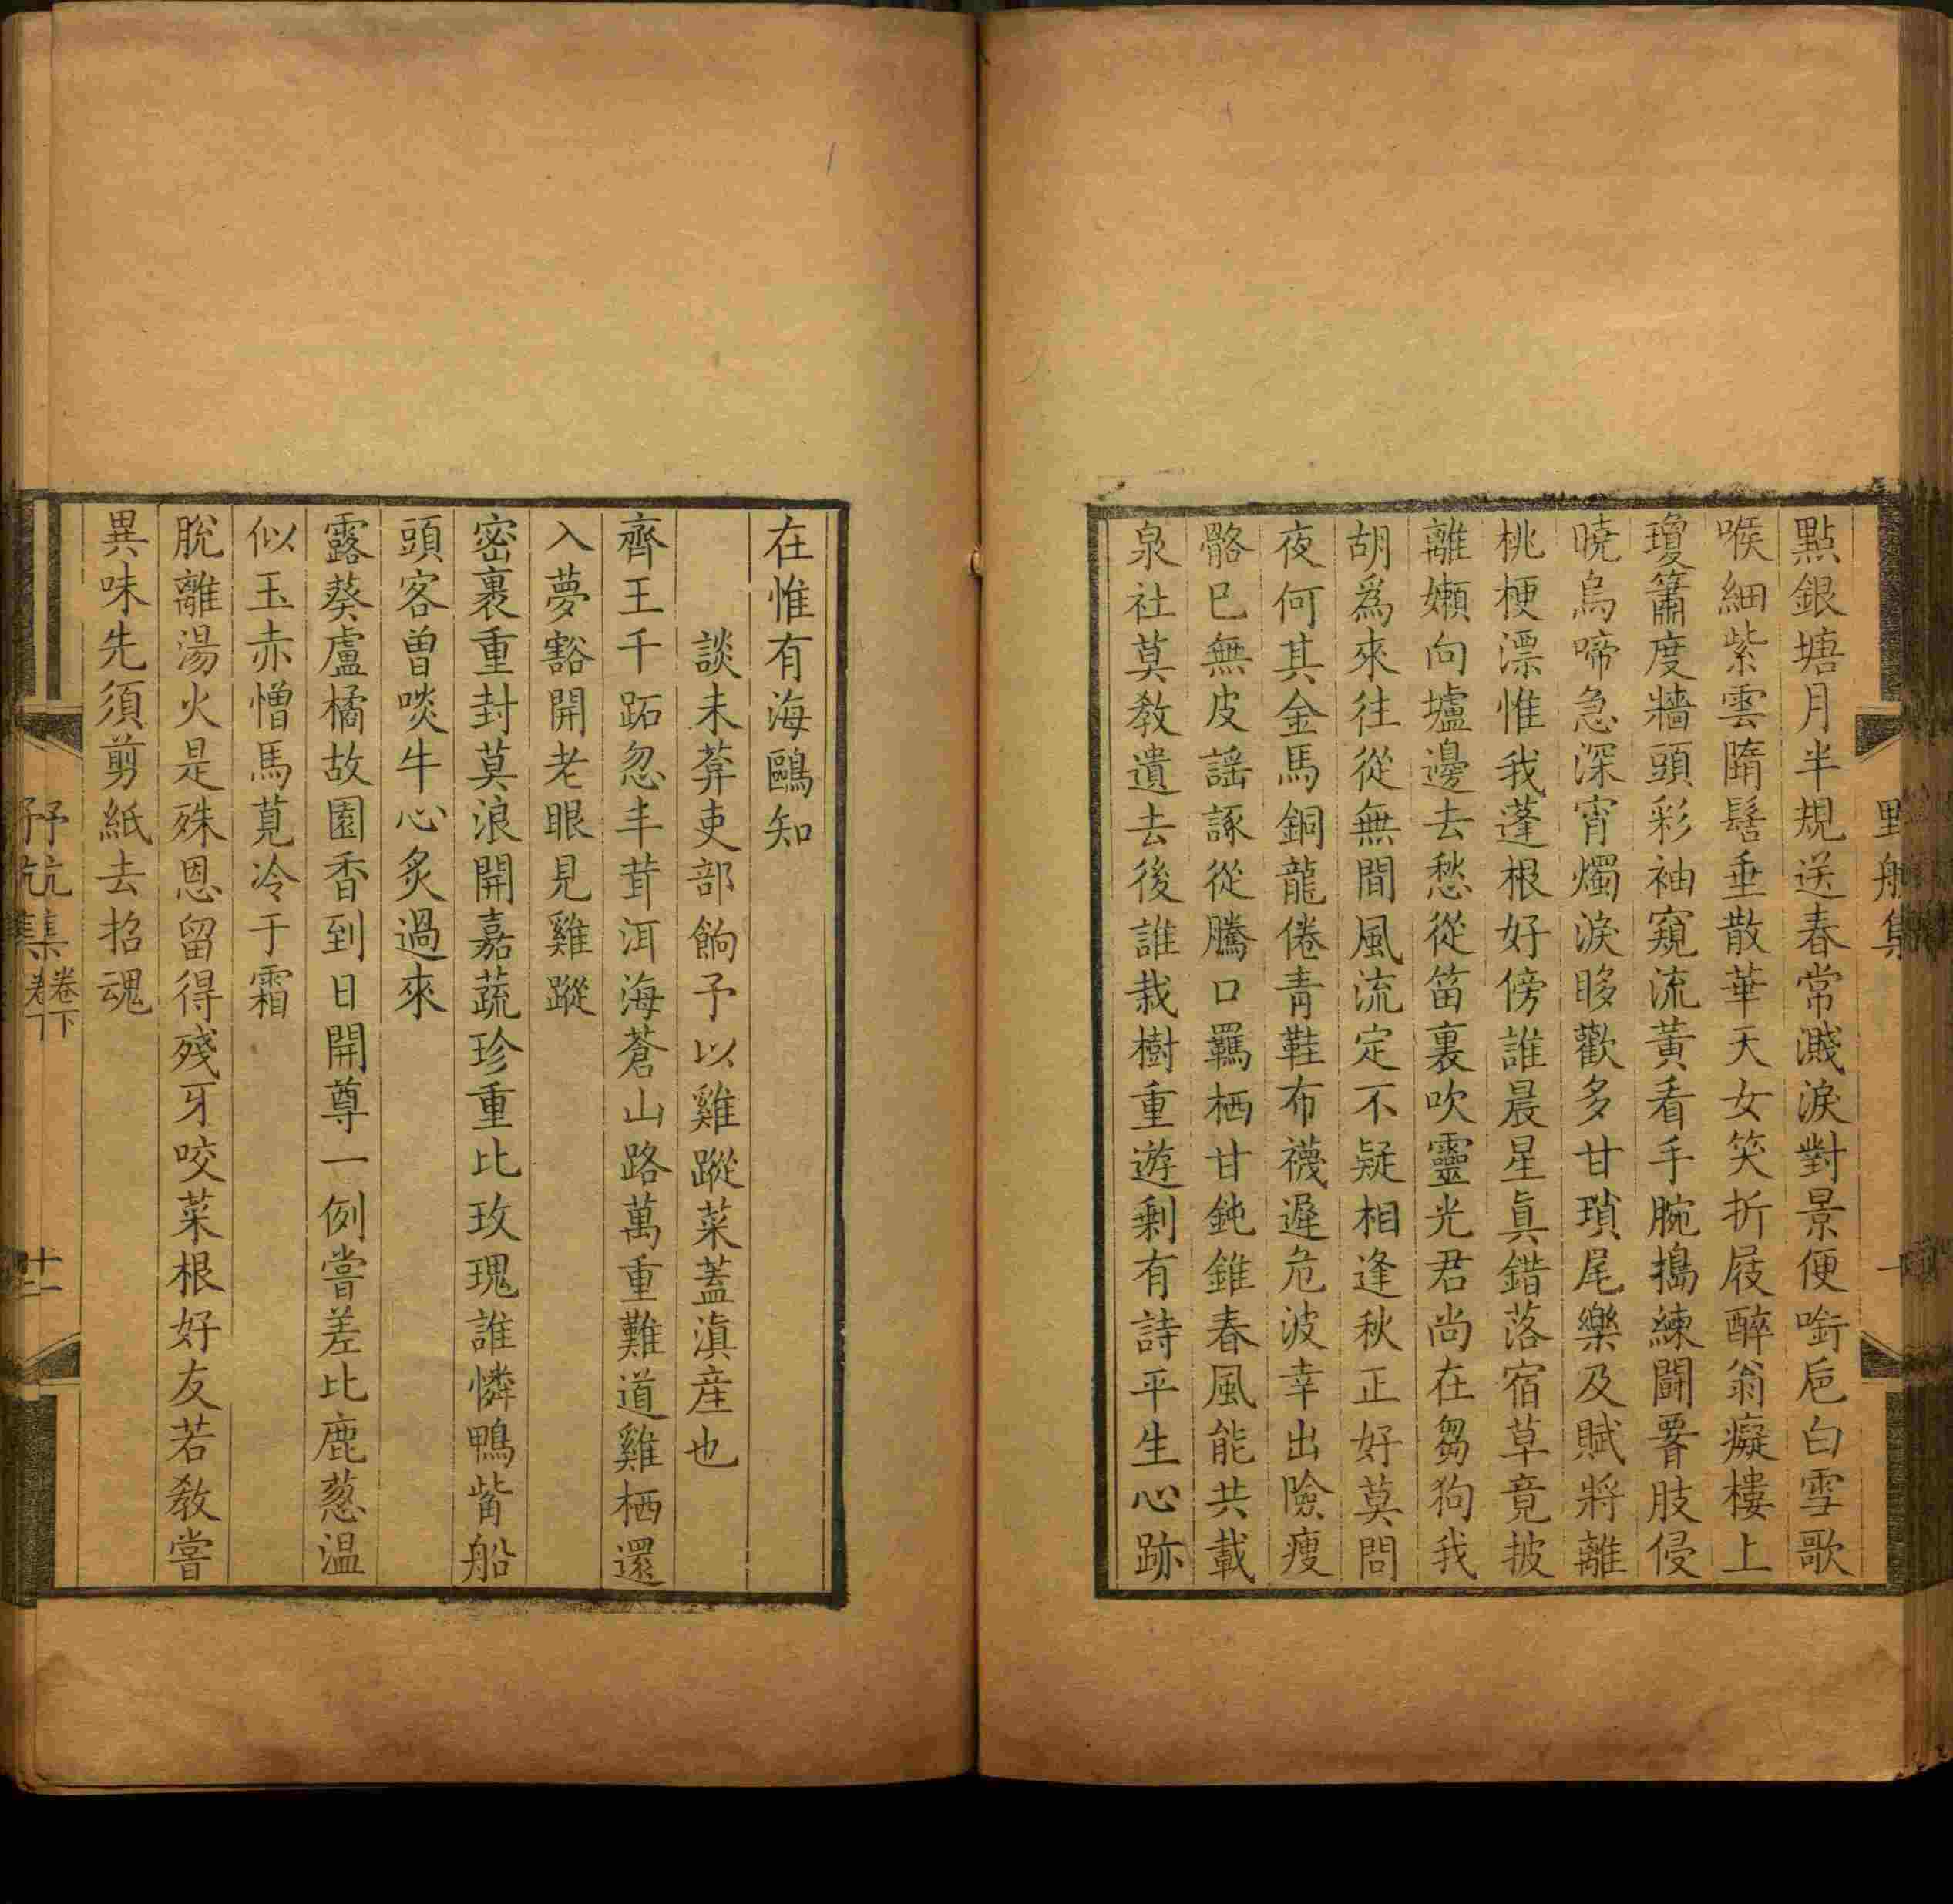 點銀塘月半規送春常濺淚對景便銜巵白雪歌
喉細紫雲隋髻垂散華天女笑折屐醉翁癡樓上
瓊簫度牆頭彩袖窺流黃看手腕搗練鬭𦝫肢侵
曉烏啼急深宵燭淚眵歡多甘瑣尾樂及賦將離
桃梗漂惟我蓬根好傍誰晨星真錯落宿草竟披
離嬾向壚邊去愁從笛裏吹靈光君尚在芻狗我
胡爲來往從無間風流定不疑相逢秋正好莫問
夜何其金馬銅龍倦青鞋布襪遲危波幸出險瘦
骼已無皮謡諑從騰口羈栖甘鈍錐春風能共載
泉社莫教遺去後誰栽樹重遊剩有詩平生心跡
在惟有海鷗知
談未莽吏部餉予以雞蹤菜蓋滇産也
齊王千跖忽丰茸洱海蒼山路萬重難道雞栖還
入夢豁開老眼見雞蹤
密裹重封莫浪開嘉蔬珍重比玫瑰誰憐鴨觜船
頭客曾啖牛心炙過來
露葵盧橘故園香到日開尊一例嘗差比鹿葱温
似玉赤憎馬莧冷于霜
脫離湯火是殊恩留得殘牙咬菜根好友若教嘗
異味先須剪紙去招魂
卷下